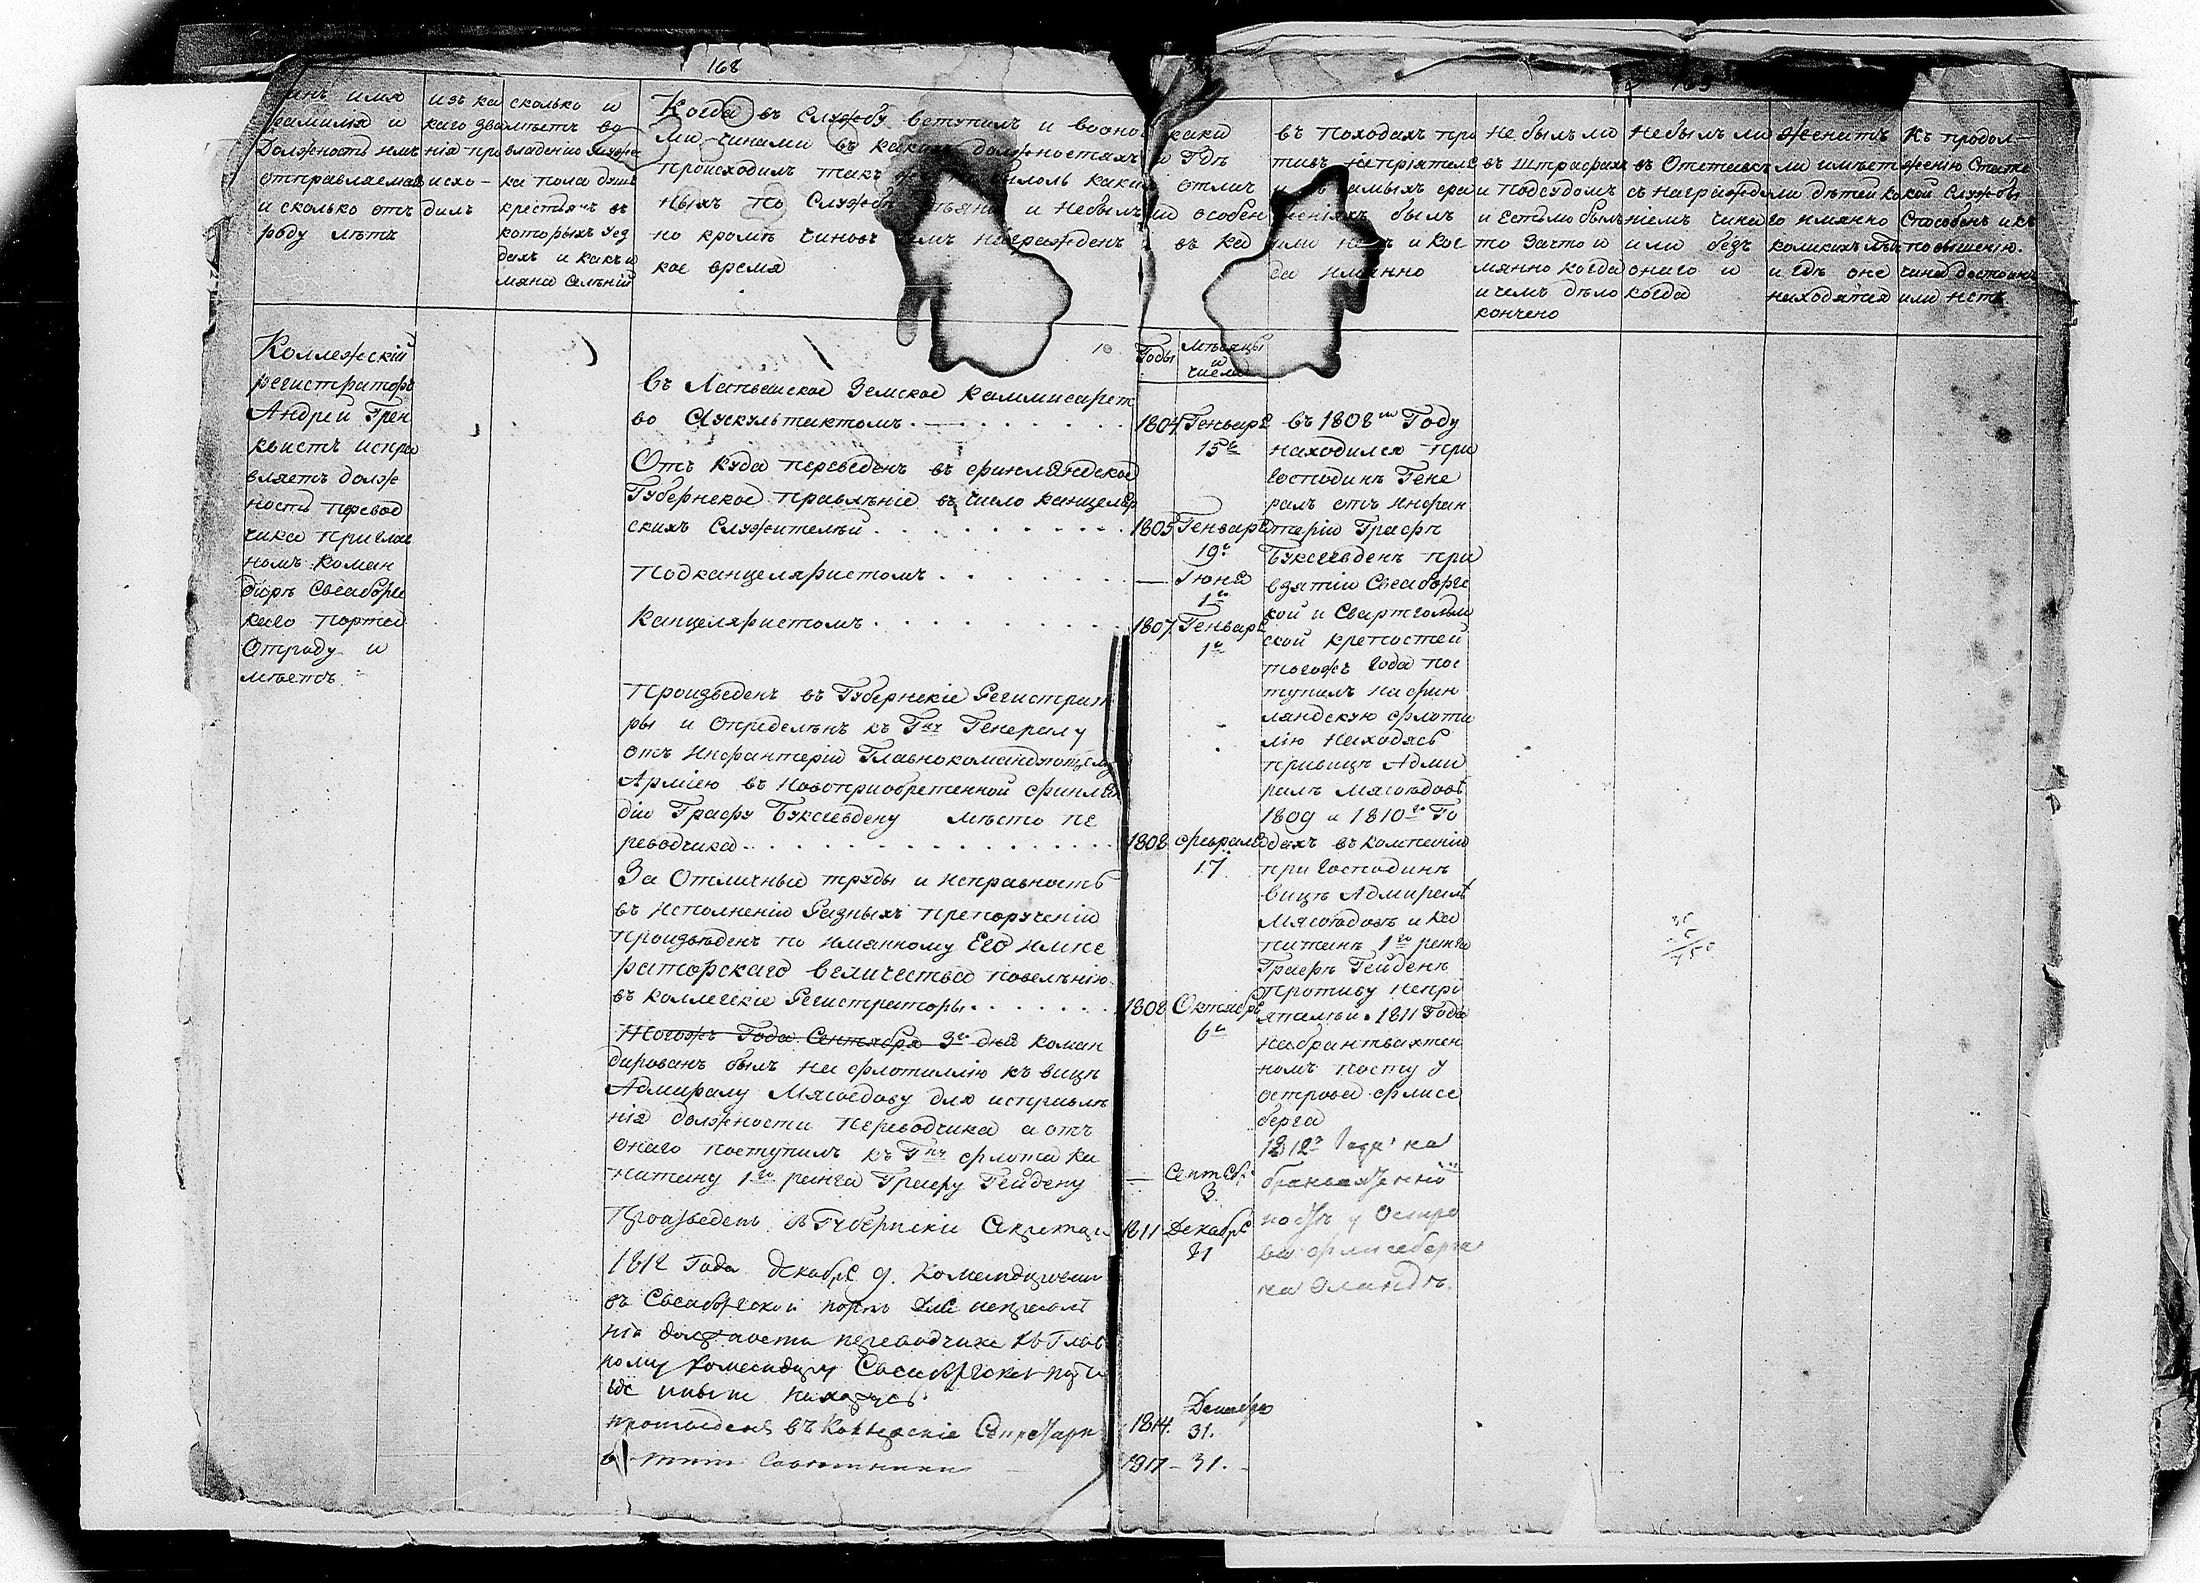 168
инъ имя
фамилія и
Должность имъ
отправляемая
и сколько отъ
роду лѣтъ
изъ ка
каго зва
нія про
исхо-
дилъ
сколько и
имѣетъ во
владѣніи
ка пола душъ
крестьянъ въ
которыхъ уез
дахъ и какъ и
мяна селѣній
Когда въ Службу вступилъ и воонои
ми чинами въ какихъ должностяхъ
происходилъ такъ
ныхъ по Службѣ и небылъ
но кромѣ чиновъ чемъ награжденъ
кое время
каки
и Гдѣ
отлич
ли особен
въ ка
въ походахъ про
тивъ непріятеля
и въ самыхъ сра
женіяхъ былъ
или нетъ и ког
да имянно
не былъ ли
въ Штрафахъ
и подсудомъ
и Естьли былъ
то Зачто и
мянно когда
и чемъ дѣло
кончено
небылъ ли
въ Отставкѣ
съ награжде
ніемъ чина
или безъ
онаго и
когда
женатъ
ли имѣетъ
ли дѣтей ко
го имянно
коликихъ лѣтъ
и гдѣ оне
находятся
Къ продол-
женію Статс
кой Службы
Способенъ и къ
повышенію
чина достоинъ
или нетъ
Коллежскій
регистраторъ
Андрей Грен
квистъ испра
вляетъ долж
ность перевод
чика приглав
номъ коман
дирѣ Свеаборгс
каго порта
Отроду и
мѣетъ
въ Земское Каммисарст
во Аускультантомъ
Отъ куда переведенъ въ финляндское
Губернское правлѣніе въ число канцеляр
скихъ Служителѣй
подканцеляристомъ
Канцеляристомъ
произведенъ въ Губернскіе Регистрат
ры и опредѣлѣнъ къ Гну Генералу
отъ инфантеріи Главнокомандующему
Арміею въ новоприобретенной финлян
діи Графу Буксгевдену мѣсто пе
реводчика
За Отличныя труды и исправность
въ исполненіи Разныхъ препорученій
произведенъ по имянному Его импе
раторскаго величества повелѣнію
въ коллегскіе Регистраторы
Тогожъ Года Сентября 3го дня коман
дированъ былъ на флотиллію къ вице
Адмиралу Мясоедову для исправле
нія должности переводчика а отъ
онаго поступилъ къ Гну флота ка
питану 1го ранга Графу Гейдену
Произведенъ въ Губернскіе Секретари
1812 Года декабря 9. Командированъ
въ Свеаборгской портъ для исправле
нія должности переводчика къ Глав
ному командиру Свеаборгскаго порта
где нынѣ находится
произведенъ въ Коллежскіе Секретари
въ тит Советники
Годы
Мѣсяцы
и
числа
1804 Генваря
15го
1805 Генваря
19го
— Іюня
1го
1807 Генваря
1го
1808 февраля
17
1808 Октября
6го
— Сентября
3
1811 Декабря
31
1814. Декабря
31.
1817 — 31. —
въ 1808мъ Году
находился при
Господинѣ Гене
ралѣ отъ инфан
теріи Графѣ
Буксгевденѣ при
взятіи Свеаборгс
кой и Свартгольм
ской крепостей
тогожъ года пос
тупилъ на фин
ляндскую флоти
лію находясь
привице Адми
ралѣ Мясоедовѣ
1809 и 1810го Го
дахъ въ компаніи
при Господинѣ
вице Адмиралѣ
Мясоедовѣ и ка
питанѣ 1го ранга
Графѣ Гейденѣ
противу непрі
ятелѣй. 1811 Года
на брантвахтен
номъ посту у
острова флисе
берга
1812го Года на
брантвахтенномъ
посту у Остро
ва флисеберга
на Оландѣ.